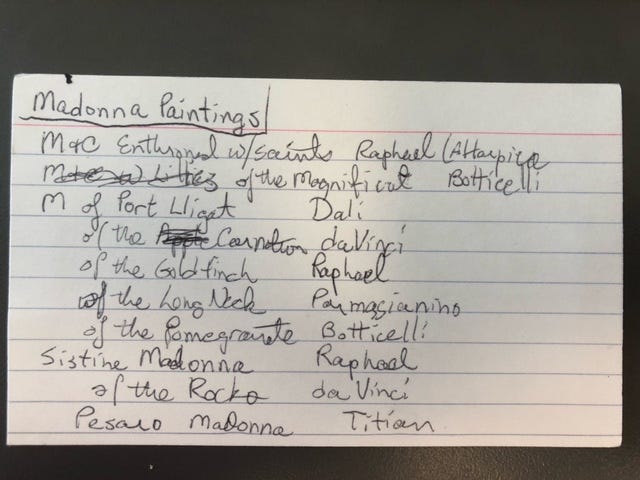 Madonna Paintings
M+C Enthroned w/saints Raphael (Altarpiece
of the Magnificat Botticelli
M of Port Lligat Dali
of the Carnation da Vinci
of the Goldfinch Raphael
of the Long Neck Parmagianino
of the Pomegranate Botticelli
Sistine Madonna Raphael
of the Rocks da Vinci
Pesaro Madonna Titian